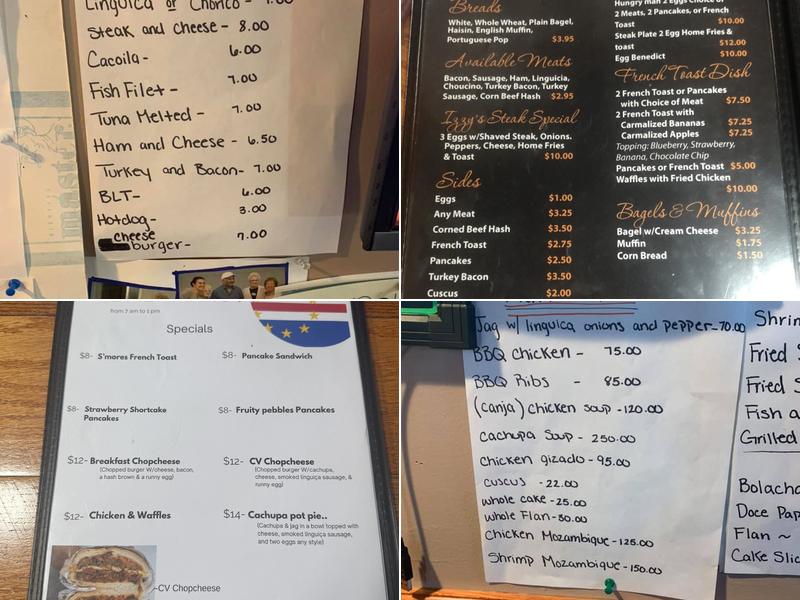 Linguica or Chorico - 7.00
Steak and cheese - 8.00
Cacoila - 6.00
Fish Filet - 7.00
Tuna Melted - 7.00
Ham and Cheese - 6.50
Turkey and Bacon - 7.00
BLT - 6.00
Hotdog - 3.00
cheese
burger - 7.00
Breads
White, Whole Wheat, Plain Bagel,
Raisin, English Muffin,
Portuguese Pop $3.95
Available Meats
Bacon, Sausage, Ham, Linguicia,
Choucino, Turkey Bacon, Turkey
Sausage, Corn Beef Hash $2.95
Izzy's Steak Special
3 Eggs w/Shaved Steak, Onions.
Peppers, Cheese, Home Fries
& Toast $10.00
Sides
Eggs $1.00
Any Meat $3.25
Corned Beef Hash $3.50
French Toast $2.75
Pancakes $2.50
Turkey Bacon $3.50
Cuscus $2.00
Hungry man 2 Eggs Choice of
2 Meats, 2 Pancakes, or French
Toast $10.00
Steak Plate 2 Egg Home Fries &
toast $12.00
Egg Benedict $10.00
French Toast Dish
2 French Toast or Pancakes
with Choice of Meat $7.50
2 French Toast with
Carmalized Bananas $7.25
Carmalized Apples $7.25
Topping: Blueberry, Strawberry,
Banana, Chocolate Chip
Pancakes or French Toast $5.00
Waffles with Fried Chicken
$10.00
Bagels & Muffins
Bagel w/Cream Cheese $3.25
Muffin $1.75
Corn Bread $1.50
from 7 am to 1 pm
Specials
$8- S'mores French Toast
$8- Pancake Sandwich
$8- Strawberry Shortcake
Pancakes
$8- Fruity pebbles Pancakes
$12- Breakfast Chopcheese
(Chopped burger W/cheese, bacon,
a hash brown & a runny egg)
$12- CV Chopcheese
(Chopped burger W/cachupa,
cheese, smoked linguiça sausage, &
runny egg)
$12- Chicken & Waffles
$14- Cachupa pot pie..
(Cachupa & jag in a bowl topped with
cheese, smoked linguiça sausage,
and two eggs any style)
CV Chopcheese
Jag w/ linguica onions and pepper - 70.00
BBQ chicken - 75.00
BBQ Ribs - 85.00
(canja) chicken soup - 120.00
cachupa soup - 250.00
chicken gizado - 95.00
cuscus - 22.00
whole cake - 25.00
whole Flan - 50.00
Chicken Mozambique - 125.00
Shrimp Mozambique - 150.00
Shrim
Fried
Fried
Fish a
Grilled
Bolacha
Doce Pap
Flan ~
Cake Slic